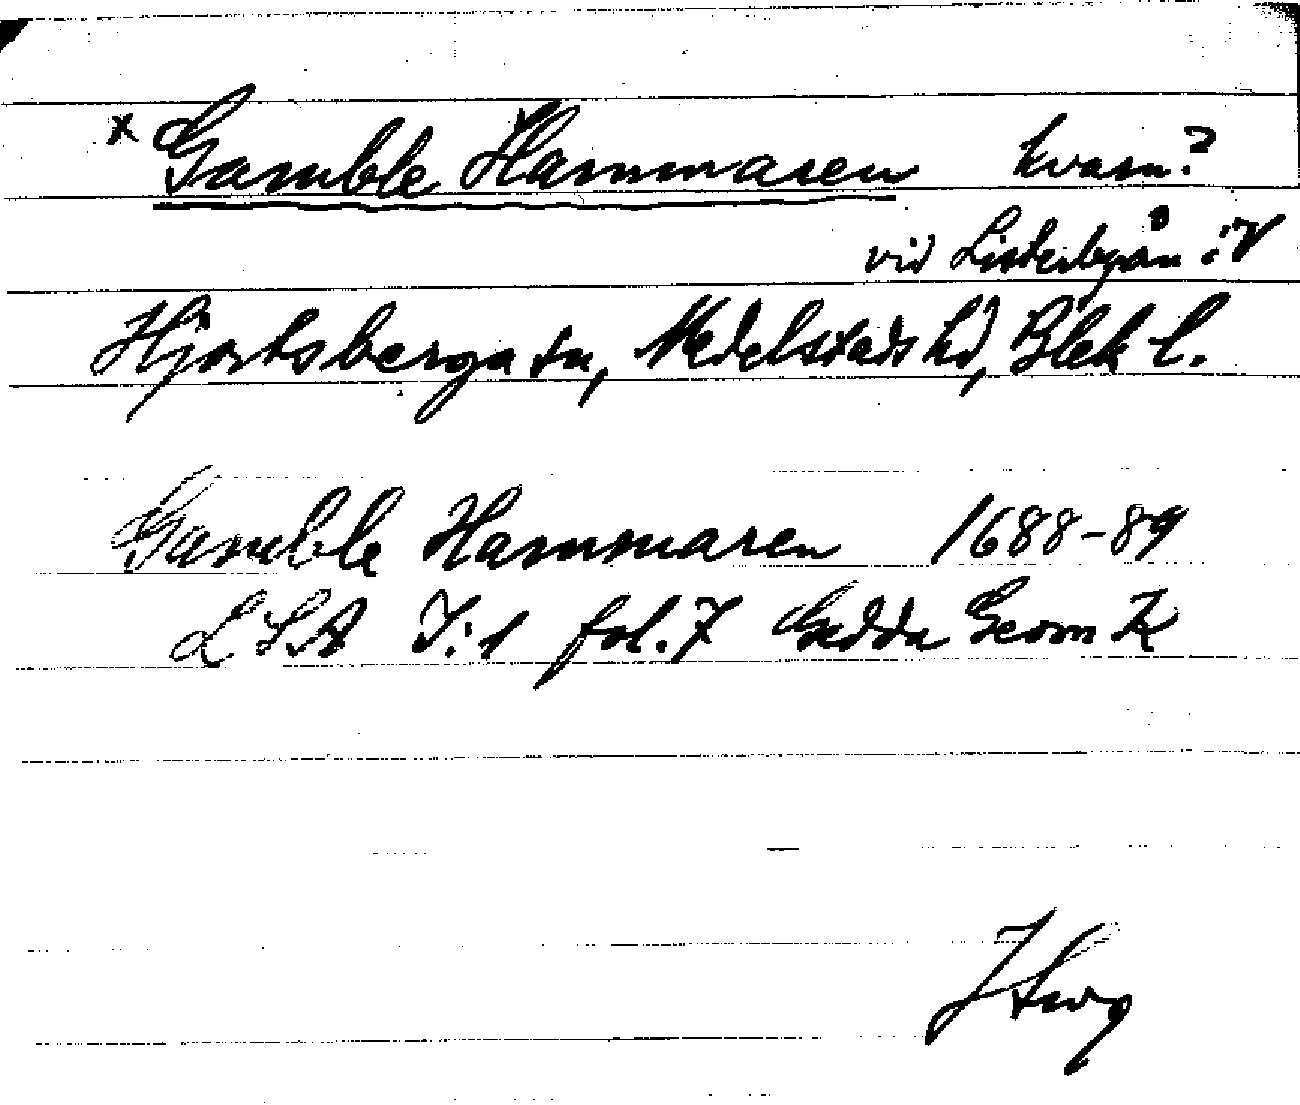 x Gamble Hammaren kvarn?
vid Listerbyån i V
Hjortsberga sn, Medelstads hd, Blek l.
Gamble Hammaren 1688-89
LSA I:1 fol. 7 Gedda Geom K